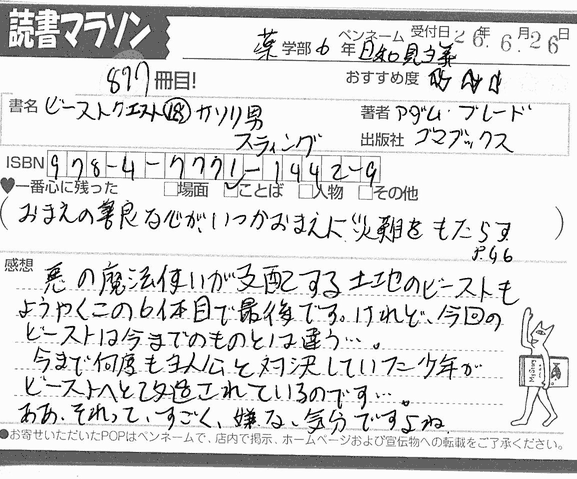 読書マラソン
薬学部6年 ペンネーム 日和見主義 受付日 26年6月26日
877冊目! おすすめ度
書名 ビーストクエスト⑱ サソリ男
スティング
著者 アダム・ブレード
出版社 ゴマブックス
ISBN 978-4-7771-1442-9
♥一番心に残った □場面 ☑ことば □人物 □その他
(おまえの善良な心が、いつかおまえに災難をもたらす)
P96
感想 悪の魔法使いが支配する土地のビーストも
ようやくこの6体目で最後です。けれど、今回の
ビーストは今までのものとは違う…。
今まで何度も主人公と対決していた少年が
ビーストへと改造されているのです…。
ああ、それって、すごく、嫌な気分ですよね
●お寄せいただいたPOPはペンネームで、店内で掲示、ホームページおよび宣伝物への転載をご了承ください。